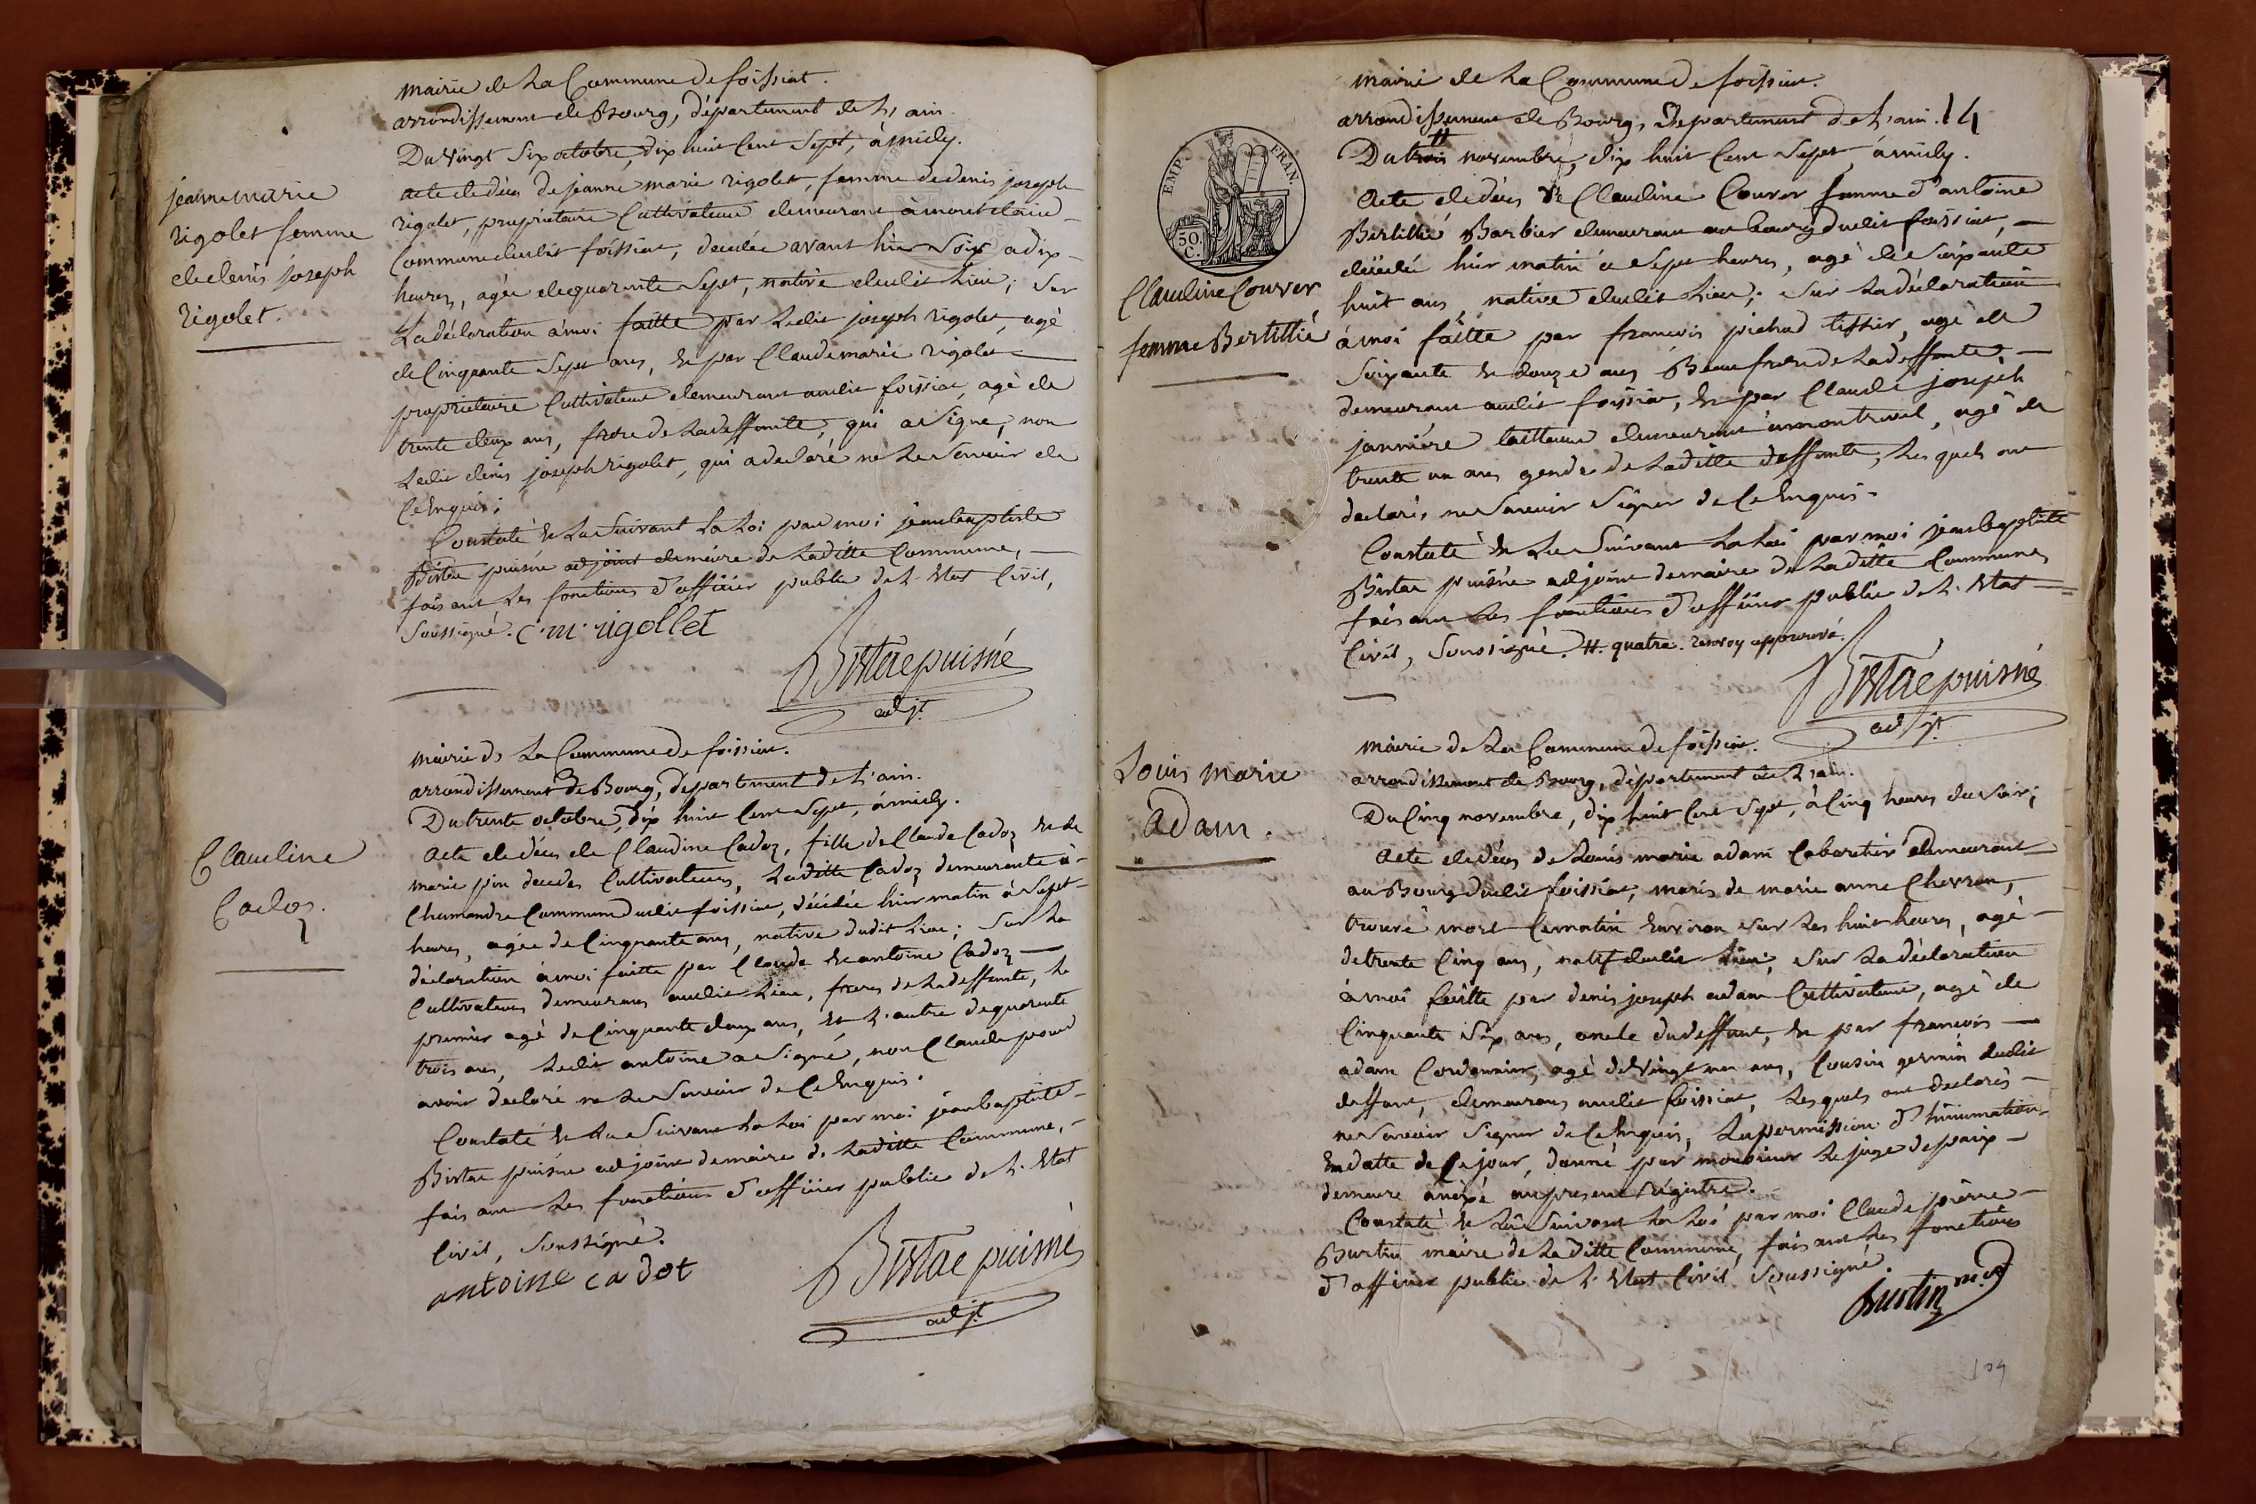 jeanne marie
rigolet femme
de denis joseph
rigolet.
mairie de La Commune de foissiat.
arrondissement de Bourg, département de L'ain.
Du vingt Six octobre, dix huit Cent Sept, à midy.
acte de déces de jeanne marie rigolet, femme de denis joseph
rigolet, proprietaire Cultivateur demeurant à
Commune dudit foissiat, decedée avant hier Soir a dix
heures, agée de quarante Sept, native dudit Lieu; Sur
La déclaration à moi faitte par Ledit joseph rigolet, agé
de Cinquante Sept ans, et par Claude marie rigolet
proprietaire Cultivateur demeurant audit foissiat, agé de
trente deux ans, frere de La deffunte, qui a Signé, non
Ledit denis joseph rigolet, qui a declaré ne Le Savoir de
Ce Enquis;
Constaté et Lu Suivant La Loi par moi jean baptiste
Bistac puisné adjoint de maire de Laditte Commune,
faisant Les fonctions d'officier public de L'Etat Civil,
Soussigné. C. m. rigollet
Bistac puisné
adjt.
Claudine
Cadoz.
mairie de La Commune de foissiat.
arrondissement de Bourg, département de L'ain.
Du trente octobre, dix huit Cent Sept, à midy.
Acte de déces de Claudine Cadoz, fille de Claude Cadoz et de
marie pin decedes Cultivateurs, Laditte Cadoz demeurante à
Chamandre Commune dudit foissiat, décédée hier matin à Sept
heures, agée de Cinquante ans, native dudit Lieu; Sur La
déclaration à moi faitte par Claude et antoine Cadoz
Cultivateurs demeurans audit Lieu, freres de La deffunte, Le
premier agé de Cinquante deux ans, et L'autre de quarente
trois ans, Ledit antoine a Signé, non Claude pour
avoir declaré ne Le Savoir de Ce Enquis.
Constaté et Lu Suivant La Loi par moi jean baptiste
Bistac puisné adjoint de maire de Laditte Commune,
faisant Les fonctions d'officier public de L'Etat
Civil, Soussigné.
antoine cadot
Bistac puisné
adjt.
14
EMP. FRAN.
50 C.
Claudine Couvor
femme Bertillié
mairie de La Commune de foissiat.
arrondissement de Bourg, Departement de L'ain.
Du trois # novembre, dix huit Cent Sept, à midy.
Acte de déces de Claudine Couvor femme d'antoine
Bertillié Barbier demeurant au bourg dudit foissiat,
décédée hier matin à Sept heures, agé de Soixante
huit ans, native dudit Lieu; Sur La déclaration
à moi faitte par francois pichod tissier, agé de
Soixante et douze ans Beaufrere de La deffunte,
demeurant audit foissiat, et par Claude joseph
janniére tailleur demeurant à montrevel, agé de
trente un ans gendre de Laditte deffunte, Les quels ont
declarés ne Savoir Signer de Ce Enquis.
Constaté et Lu Suivant La Loi par moi jean baptiste
Bistac puisné adjoint de maire de Laditte Commune
faisant Les fonctions d'officier public de L'Etat
Civil, Soussigné. #. quatre. renvoy approuvé.
Bistac puisné
adjt.
Louis marie
Adam.
mairie de La Commune de foissiat.
arrondissement de Bourg, département de L'ain.
Du Cinq novembre, dix huit Cent Sept, à Cinq heures du Soir;
Acte de déces de Louis marie adam Cabaretier demeurant
au Bourg dudit foissiat, maris de marie anne Chevron,
trouvé mort Ce matin Environ Sur Les huit heures, agé
de trente Cinq ans, natif dudit Lieu, Sur La déclaration
à moi faitte par denis joseph adam Cultivateur, agé de
Cinquante Six ans, oncle du deffunt, et par francois
adam Cordonnier, agé de Vingt un ans, Cousin germin dudit
deffunt, demeurans audit foissiat, Les quels ont declarés
ne Savoir Signer de Ce Enquis, La permission d'hinumation
En datte de Ce jour, donné par monsieur Le juge de paix
demeure anexé au present régistre.
Constaté et Lu Suivant La Loi par moi Claude pierre
Burtin maire de La ditte Commune, faisant Les fonctions
d'officier public de L'Etat Civil Soussigné.
Burtin
109